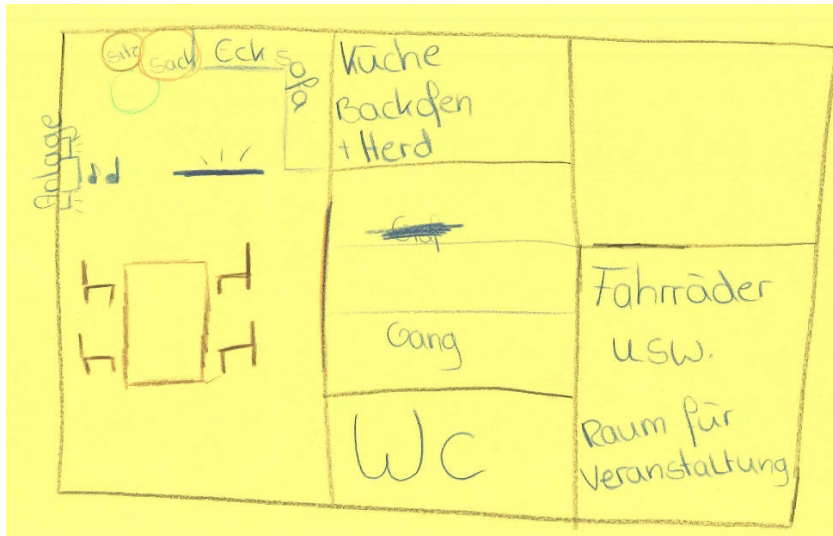 Sitz
Sack
Eck
sofa
Anlage
Küche
Backofen
+ Herd
Gang
WC
Fahrräder
usw.
Raum für
Veranstaltung